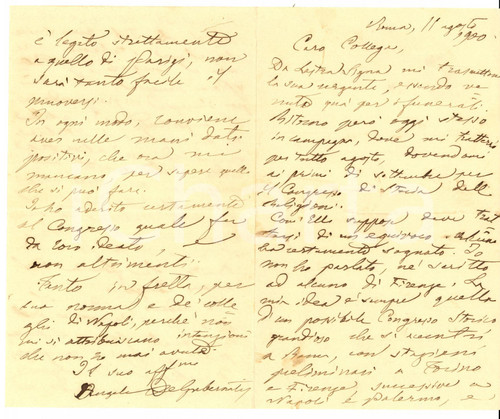 Roma, 11 agosto
1900
Caro Collega,
Da Lastra Signa mi trasmettono
la sua cartolina, essendo ve
nuto qui per i funerali.
Ritorno però oggi stesso
in campagna, dove mi tratterrò
per tutto agosto, dovendomi
ai primi di settembre per
il Congresso di Storia delle
Religioni.
Com'Ella suppose deve trat
tarsi di un equivoco
ha certamente sognato. Io
non ho parlato, nè scritto
ad alcuno di Firenze. La
mia idea è sempre quella
d'un possibile Congresso Storico
grandioso che si incontri
a Roma, con stazioni
preliminari a Torino
e Firenze, successive a
Napoli e Palermo, e
è legato strettamente
a quello di Parigi, non
sarà tanto facile il
muoversi.
In ogni modo, conviene
aver nelle mani dati
positivi, che ora mi
mancano, per sapere quello
che si può fare.
Io ho aderito certamente
al Congresso quale fu
da loro ideato, e
non altrimenti.
Tanto in fretta, per
sua norma e de' colle
ghi di Napoli, perchè non
mi si attribuiscano intenzioni
che non ho mai avute.
Il suo aff.mo
Angelo De Gubernatis